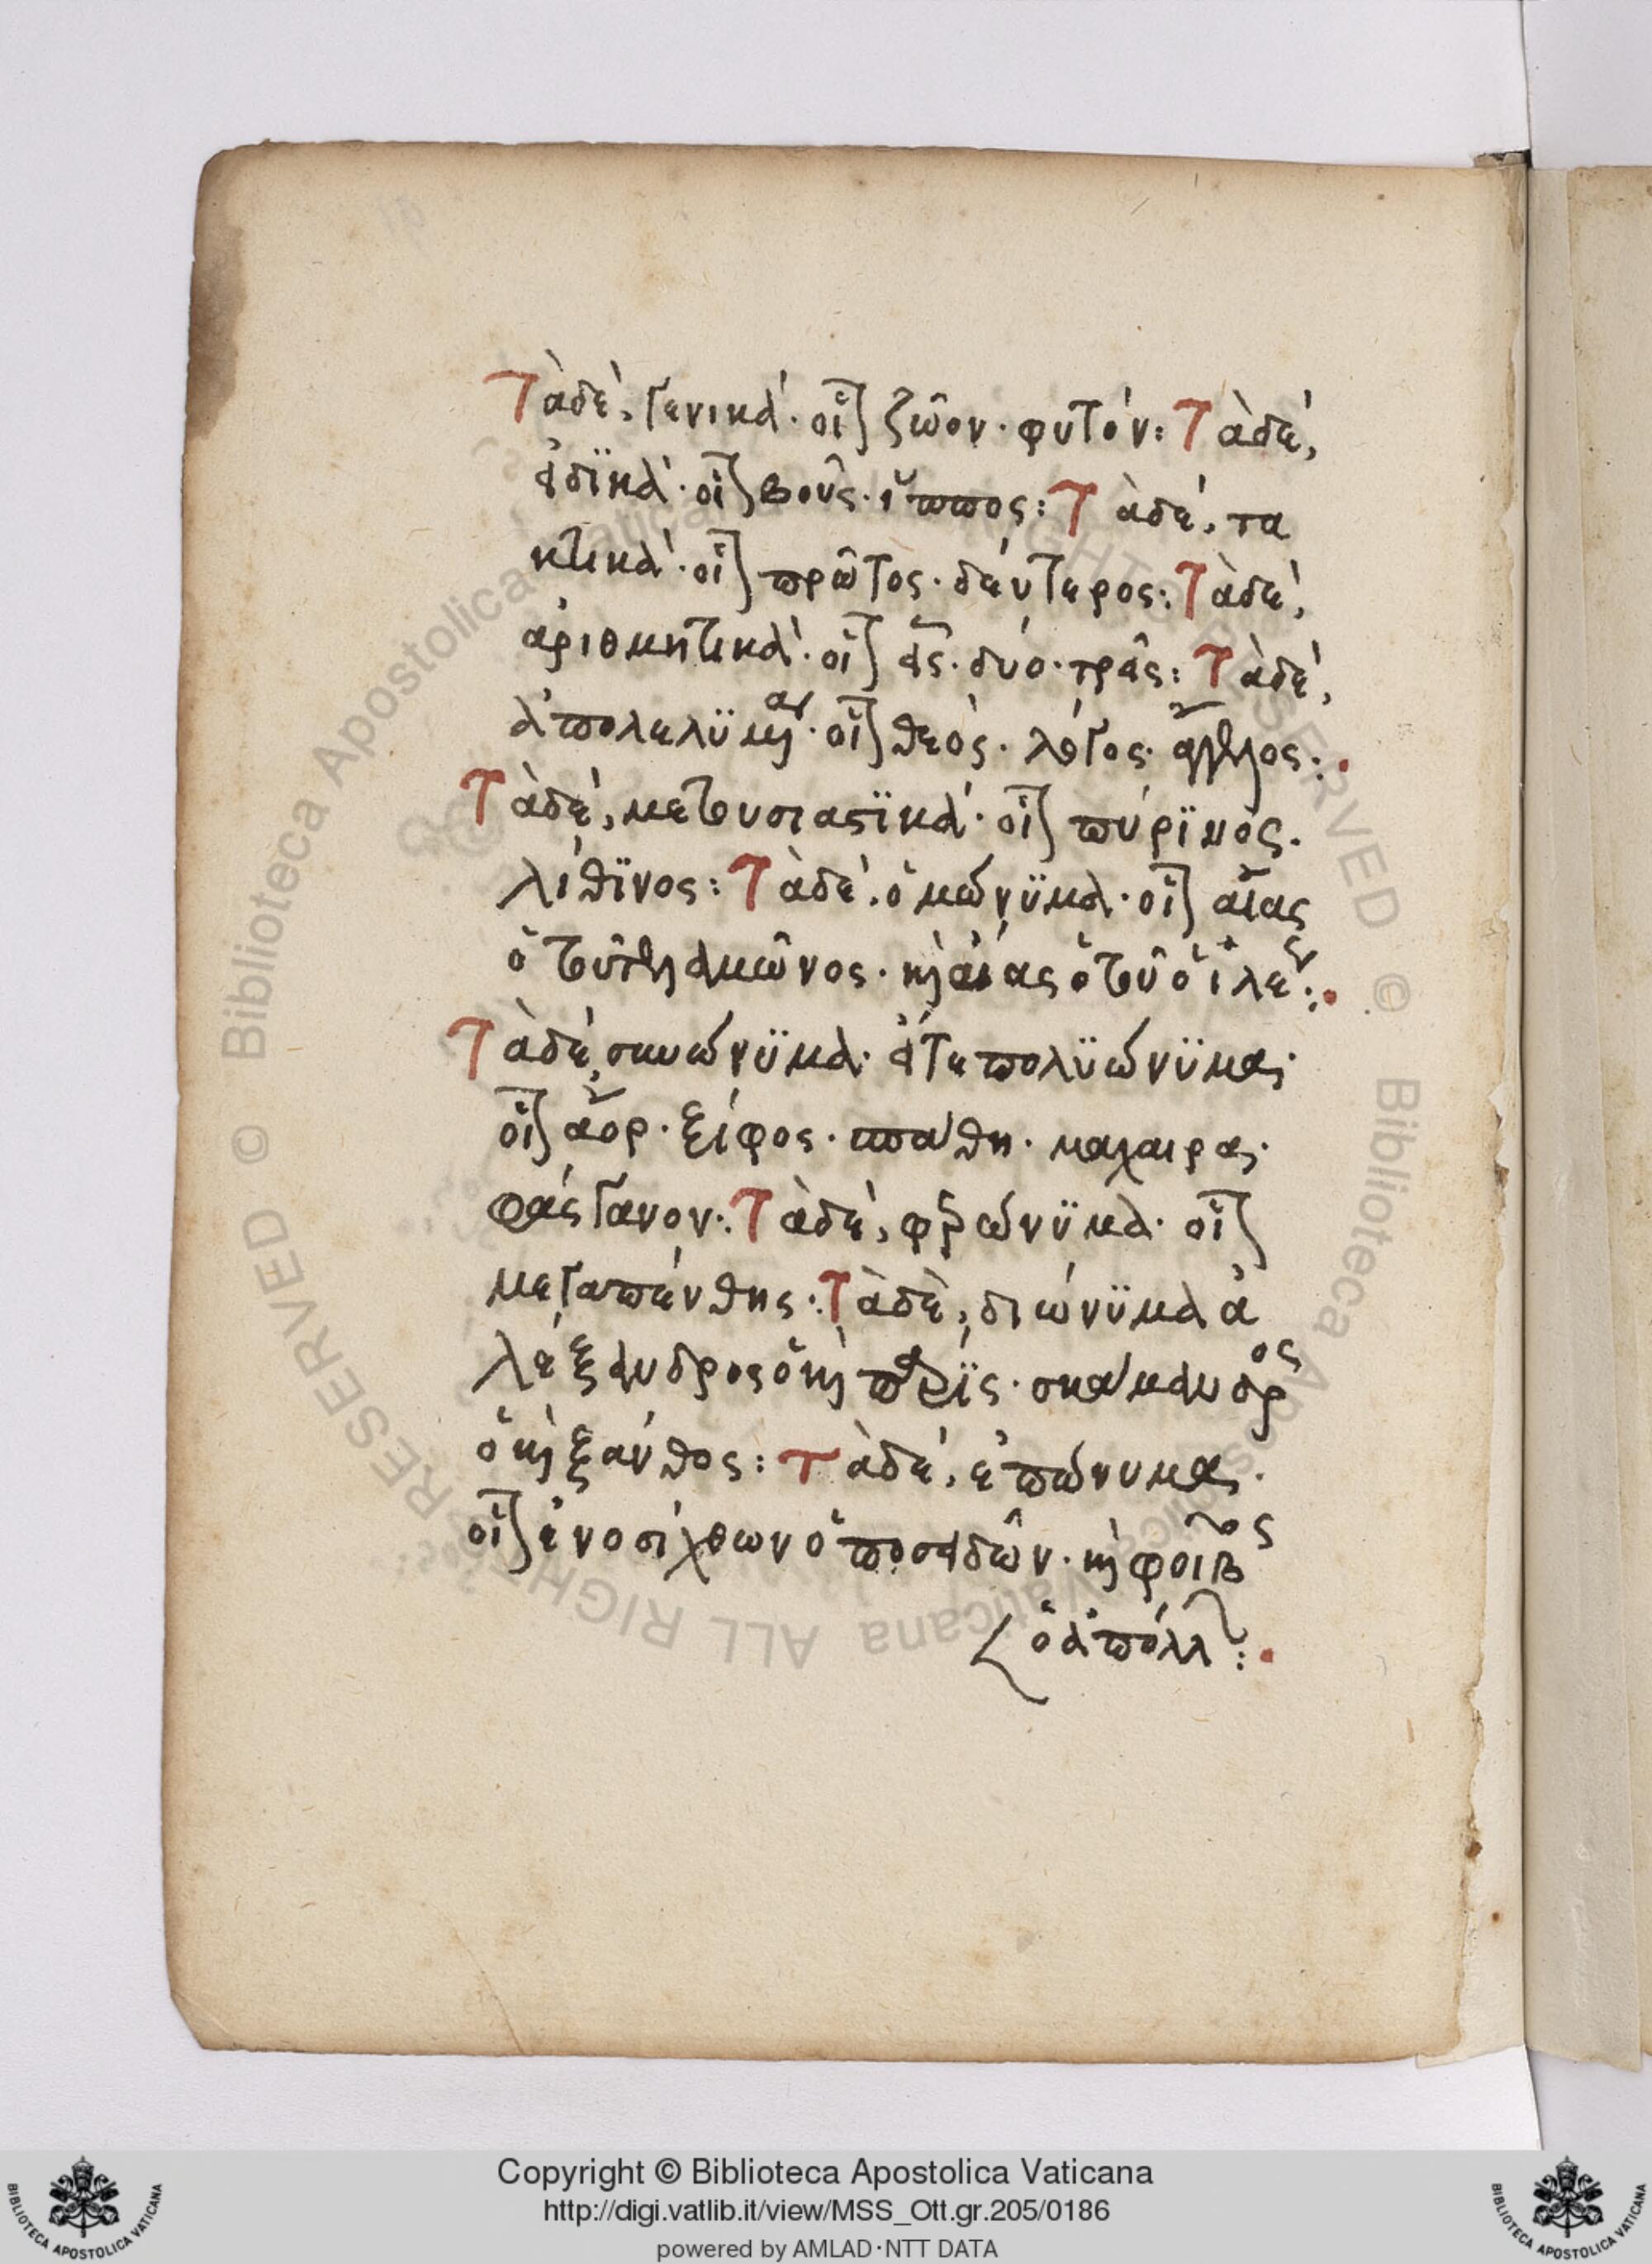 Τὰδέ, γενικά· οἷον ζῶον· φυτόν: Τὰδέ,
εἰδϊκά· οἷον βοῦς· ἵππος: Τὰδέ, τα
κτικά· οἷον πρῶτος· δεύτερος: Τὰδέ,
ἀριθμητικά· οἷον εἷς· δύο· τρεῖς: Τὰδέ,
ἀπολελϋμέναι· οἷον θεός· λόγος· ἄγγελος:
Τὰδέ, μετουσιαστϊκά· οἷον πύρϊνος·
λίθϊνος: Τὰδέ, ὁμώνϋμα· οἷον αἴας
ὁ τοῦ τελαμῶνος· καὶ αἴας ὁ τοῦ ὀϊλέως:
Τὰδέ, συνώνϋμα· εἴτε πολϋώνϋμα·
οἷον ἄορ· ξίφος· σπάθη· μάχαιρα·
φάσγανον: Τὰδέ, φερώνϋμα· οἷον
μεγαπένθης: Τὰδὲ, διώνϋμα ἀ
λέξανδρος ὁ καὶ πάρϊς· σκάμανδρος
ὁ καὶ ξάνθος: Τὰδέ, ἐπώνυμα·
οἷον ἐνοσίχθων ὁ ποσειδῶν· καὶ φοῖβος
ὁ ἀπόλλων:
Copyright © Biblioteca Apostolica Vaticana
http://digi.vatlib.it/view/MSS_Ott.gr.205/0186
powered by AMLAD·NTT DATA
BIBLIOTECA APOSTOLICA VATICANA
BIBLIOTECA APOSTOLICA VATICANA
Biblioteca Apostolica Vaticana ALL RIGHTS RESERVED ©
Biblioteca Apostolica Vaticana ALL RIGHTS RESERVED ©